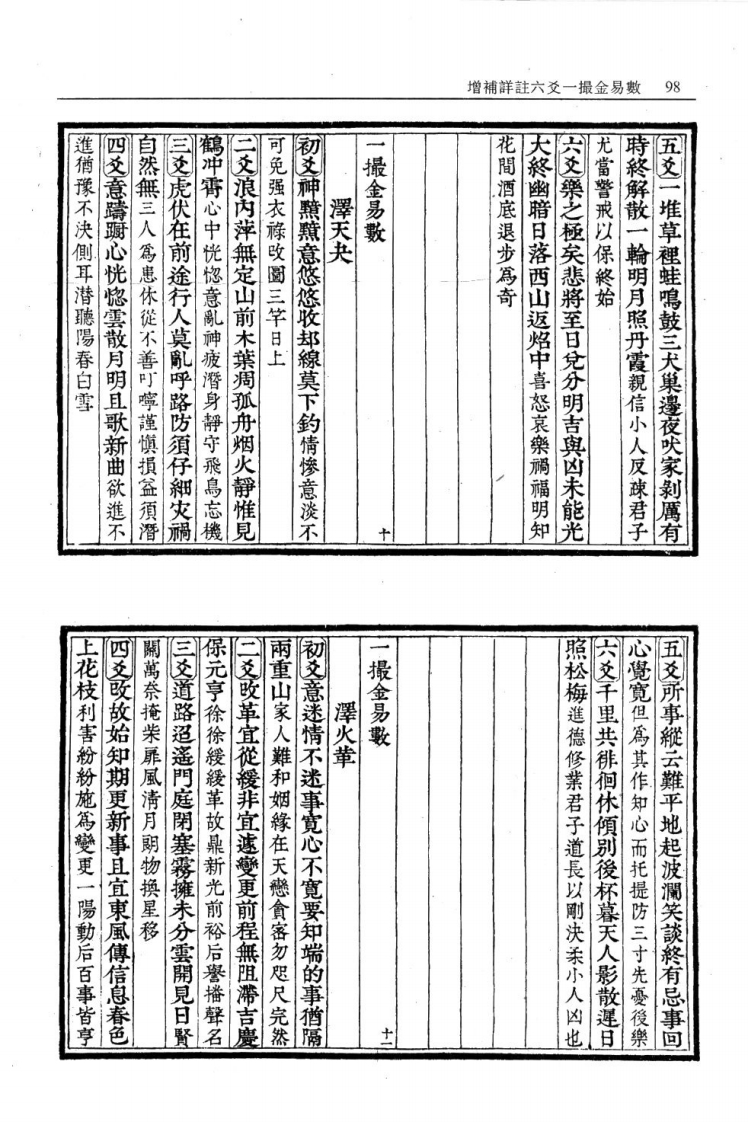 增補詳註六爻一撮金易數 98
五爻一堆草裡蛙鳴鼓三犬巢邊夜吠家剝厲有
時終解散一輪明月照丹霞親信小人反疎君子
尤當警戒以保終始
六爻樂之極矣悲將至日兌分明吉與凶未能光
大終幽暗日落西山返焰中喜怒哀樂禍福明知
花間酒底退步爲奇
一撮金易數 十
澤天夬
初爻神黯黯意悠悠收却線莫下釣情慘意淡不
可免强衣祿改圖三竿日上
二爻浪內萍無定山前木葉凋孤舟烟火靜惟見
鶴冲霄心中恍惚意亂神疲潛身靜守飛鳥忘機
三爻虎伏在前途行人莫亂呼路防須仔細灾禍
自然無三人爲患休從不善叮嚀謹愼損益須潛
四爻意躊躕心恍惚雲散月明且歌新曲欲進不
進猶豫不決側耳潛聽陽春白雪
五爻所事縱云難平地起波瀾笑談終有忌事回
心覺寬但爲其作知心而托提防三寸先憂後樂
六爻千里共徘徊休傾別後杯暮天人影散遲日
照松梅進德修業君子道長以剛決柔小人凶也
一撮金易數 十一
澤火革
初爻意迷情不迷事寬心不寬要知端的事猶隔
兩重山家人難和姻緣在天戀貪密勿咫尺完然
二爻改革宜從緩非宜遽變更前程無阻滯吉慶
保元亨徐徐緩緩革故鼎新光前裕后譽播聲名
三爻道路迢遙門庭閉塞霧擁未分雲開見日賢
關萬奈掩柴扉風淸月朗物換星移
四爻改故始知期更新事且宜東風傳信息春色
上花枝利害紛紛施爲變更一陽動后百事皆亨